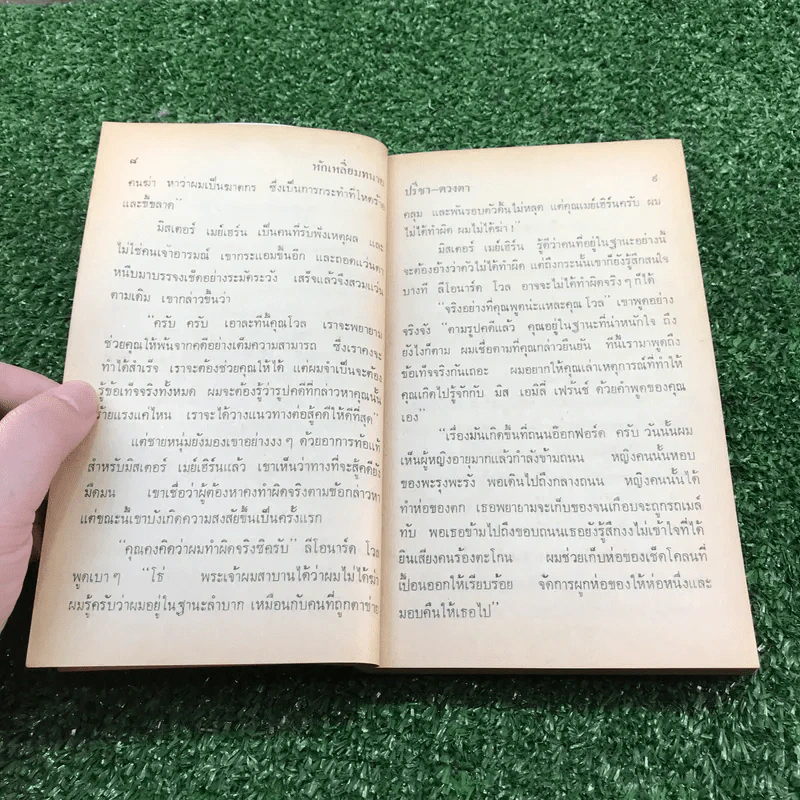 ๘ หักเหลี่ยมทนาย
คนฆ่า หาว่าผมเป็นฆาตกร ซึ่งเป็นการกระทำที่โหดร้าย
และขี้ขลาด"
มิสเตอร์ เมย์เฮิร์น เป็นคนที่รับฟังเหตุผล และ
ไม่ใช่คนเจ้าอารมณ์ เขากระแอมขึ้นอีก และถอดแว่นตา
หนีบมาบรรจงเช็ดอย่างระมัดระวัง เสร็จแล้วจึงสวมแว่น
ตามเดิม เขากล่าวขึ้นว่า
"ครับ ครับ เอาละทีนี้คุณโวล เราจะพยายาม
ช่วยคุณให้พ้นจากคดีอย่างเต็มความสามารถ ซึ่งเราคงจะ
ทำได้สำเร็จ เราจะต้องช่วยคุณให้ได้ แต่ผมจำเป็นจะต้อง
รู้ข้อเท็จจริงทั้งหมด ผมจะต้องรู้ว่ารูปคดีที่กล่าวหาคุณนั้น
ร้ายแรงแค่ไหน เราจะได้วางแนวทางต่อสู้คดีให้ดีที่สุด"
แต่ชายหนุ่มยังมองเขาอย่างงง ๆ ด้วยอาการท้อแท้
สำหรับมิสเตอร์ เมย์เฮิร์นแล้ว เขาเห็นว่าทางที่จะสู้คดียัง
มืดมน เขาเชื่อว่าผู้ต้องหาคงทำผิดจริงตามข้อกล่าวหา
แต่ขณะนี้เขาบังเกิดความสงสัยขึ้นเป็นครั้งแรก
"คุณคงคิดว่าผมทำผิดจริงซิครับ" ลีโอนาร์ด โวล
พูดเบา ๆ "โธ่ พระเจ้าผมสาบานได้ว่าผมไม่ได้ฆ่า
ผมรู้ครับว่าผมอยู่ในฐานะลำบาก เหมือนกับคนที่ถูกตาข่าย
ปรีชา–ดวงตา ๙
คลุม และพันรอบตัวดิ้นไม่หลุด แต่คุณเมย์เฮิร์นครับ ผม
ไม่ได้ทำผิด ผมไม่ได้ฆ่า!"
มิสเตอร์ เมย์เฮิร์น รู้ดีว่าคนที่อยู่ในฐานะอย่างนี้
จะต้องอ้างว่าตัวไม่ได้ทำผิด แต่ถึงกระนั้นเขาก็ยังรู้สึกสนใจ
บางที ลีโอนาร์ด โวล อาจจะไม่ได้ทำผิดจริง ๆ ก็ได้
"จริงอย่างที่คุณพูดน่ะแหละคุณ โวล" เขาพูดอย่าง
จริงจัง "ตามรูปคดีแล้ว คุณอยู่ในฐานะที่น่าหนักใจ ถึง
ยังไงก็ตาม ผมเชื่อตามที่คุณกล่าวยืนยัน ทีนี้เรามาพูดถึง
ข้อเท็จจริงกันเถอะ ผมอยากให้คุณเล่าเหตุการณ์ที่ทำให้
คุณเกิดไปรู้จักกับ มิส เอมิลี่ เฟร้นช์ ด้วยคำพูดของคุณ
เอง"
"เรื่องมันเกิดขึ้นที่ถนนอ๊อกฟอร์ด ครับ วันนั้นผม
เห็นผู้หญิงอายุมากแล้วกำลังข้ามถนน หญิงคนนั้นหอบ
ของพะรุงพะรัง พอเดินไปถึงกลางถนน หญิงคนนั้นได้
ทำห่อของตก เธอพยายามจะเก็บของจนเกือบจะถูกรถเมล์
ทับ พอเธอข้ามไปถึงขอบถนนเธอยังรู้สึกงงไม่เข้าใจที่ได้
ยินเสียงคนร้องตะโกน ผมช่วยเก็บห่อของเช็ดโคลนที่
เปื้อนออกให้เรียบร้อย จัดการผูกห่อของให้ห่อหนึ่งและ
มอบคืนให้เธอไป"